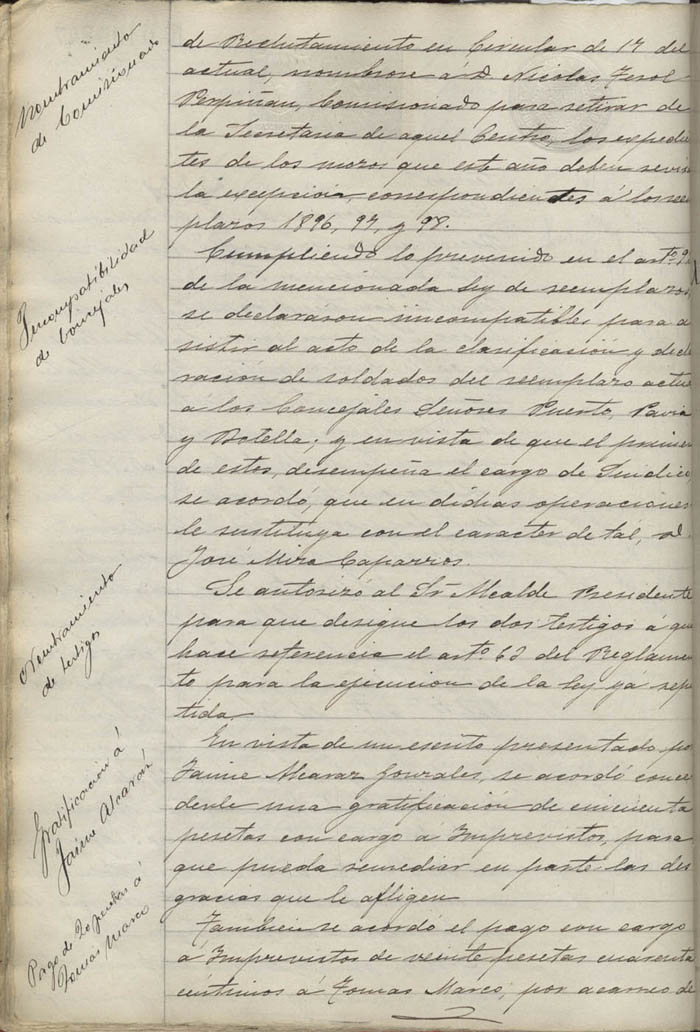 Nombramiento
de Comisionado
de Reclutamiento en Circular de 17 del
actual, nombrose á D. Nicolas Terol
Perpiñan, Comisionado para retirar de
la Secretaria de aquel Centro, los expedien
tes de los mozos que este año deben revisar
la excepción, correspondientes á los reem
plazos 1896, 97, y 98.
Incompatibilidad
de Concejales
Cumpliendo lo prevenido en el artº 9
de la mencionada Ley de reemplazos
se declararon incompatibles para a
sistir al acto de la clasificación y decla
ración de soldados del reemplazo actual
á los Concejales Señores Puerto, Pavia
y Botella; y en vista de que el primero
de estos, desempeña el cargo de Sindico,
se acordó, que en dichas operaciones
le sustituya con el caracter de tal, D.
José Mira Caparros.
Nombramiento
de testigos
Se autorizó al Sr Alcalde Presidente
para que desigue los dos testigos á que
hace referencia el artº 62 del Reglamen
to para la ejecucion de la Ley yá repe
tida.
Gratificación á
Jaime Alcaraz
En vista de un escrito presentado por
Jaime Alcaraz Gonzales, se acordó conce
derle una gratificación de cincuenta
pesetas con cargo a Imprevistos, para
que pueda remediar en parte las des
gracias que le afligen
Pago de 20 pesetas á
Tomas Marco
Tambien se acordó el pago con cargo
á Imprevistos de veinte pesetas cuarenta
céntimos á Tomas Marco, por acarreo de